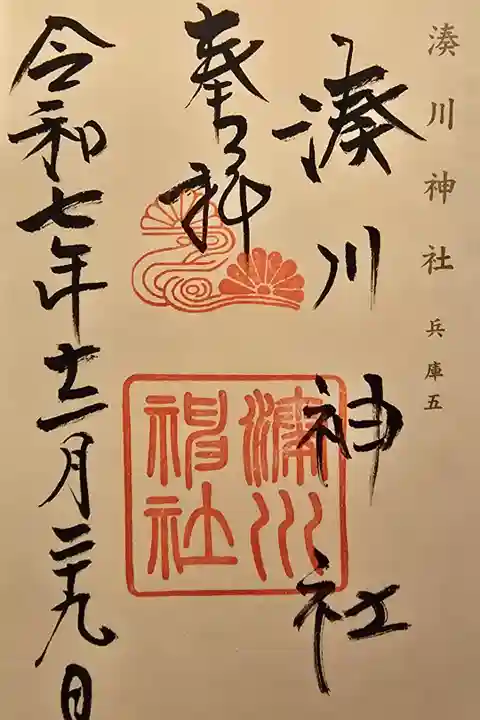 湊川神社 兵庫五
湊川神社
奉拝
湊川
神社
令和七年十一月二十九日